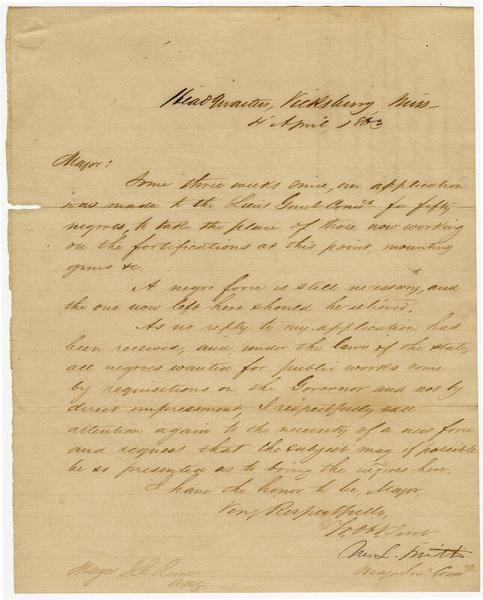 Headquarters, Vicksburg Miss
4 April, 1863
Major:
Some three weeks since, an application
was made to the Lieut Genl Comdg for fifty
negroes, to take the place of those now working
on the fortifications at this point, mounting
guns &c.
A negro force is still necessary, and
the one now left here should be relieved.
As no reply to my application has
been received, and, under the laws of the state,
all negroes wanted for public works come
by requisitions on the Governor and not by
direct impressment, I respectfully call
attention again to the necessity of a new force
and request that the subject may if possible
be so presented as to bring the negroes here.
I have the honor to be, Major
Very Respectfully,
Yr Obt Servt
M. L. Smith
Major Genl Comdg
Major
AAG